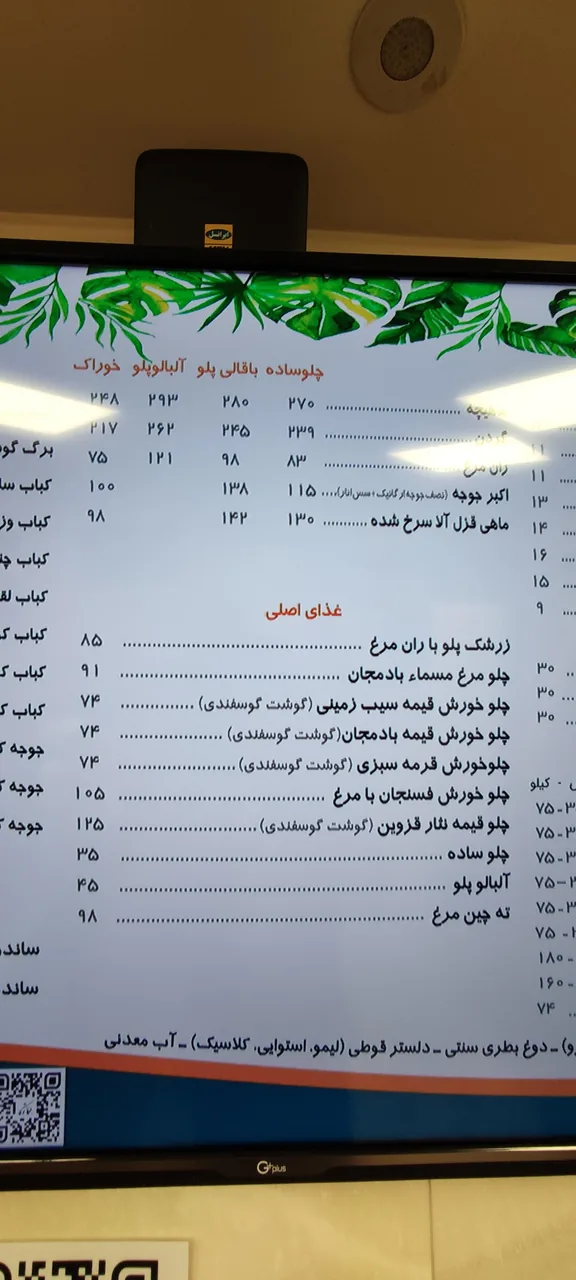 ایرانسل
چلوساده باقالی پلو آلبالوپلو خوراک
۲۷۰ ۲۸۰ ۲۹۳ ۲۴۸
۲۳۹ ۲۴۵ ۲۶۲ ۲۱۷
ران مرغ ۸۳ ۹۸ ۱۲۱ ۷۵
اکبر جوجه (نصف جوجه ارگانیک + سس انار).... ۱۱۵ ۱۳۸ ۱۰۰
ماهی قزل آلا سرخ شده ........... ۱۳۰ ۱۴۲ ۹۸
غذای اصلی
زرشک پلو با ران مرغ ........ ۸۵
چلو مرغ مسماء بادمجان ........ ۹۱
چلو خورش قیمه سیب زمینی (گوشت گوسفندی) ........ ۷۴
چلو خورش قیمه بادمجان(گوشت گوسفندی) ........ ۷۴
چلوخورش قرمه سبزی (گوشت گوسفندی) ........ ۷۴
چلو خورش فسنجان با مرغ ........ ۱۰۵
چلو قیمه نثار قزوین (گوشت گوسفندی) ........ ۱۲۵
چلو ساده ........ ۳۵
آلبالو پلو ........ ۴۵
ته چین مرغ ........ ۹۸
۱۱
۱۱
۱۳
۱۴
۱۶
۱۵
۹
۳۰
۳۰
۳۰
- کیلو
۷۵
۷۵
۷۵
۷۵
۷۵
۷۵
۱۸۰
۱۶۰
۷۴
برگ
کباب
کباب
کباب
کباب
کباب
کباب
کباب
جوجه
جوجه
جوجه
ـ دوغ بطری سنتی ـ دلستر قوطی (لیمو، استوایی، کلاسیک) ـ آب معدنی
Gplus